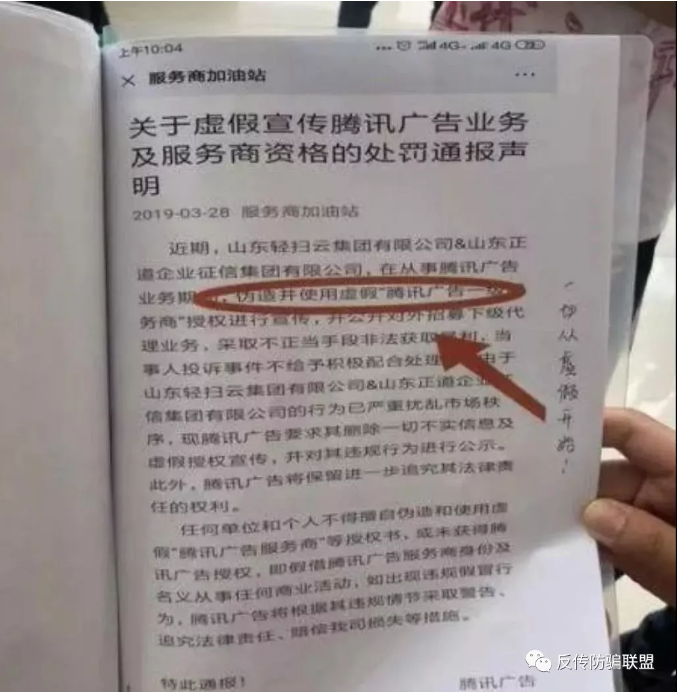 上午10:04
4G 4G
服务商加油站
关于虚假宣传腾讯广告业务
及服务商资格的处罚通报声
明
2019-03-28 服务商加油站
近期，山东轻扫云集团有限公司&山东正
道企业征信集团有限公司，在从事腾讯广告
业务期，伪造并使用虚假“腾讯广告一级
务商”授权进行宣传，并公开对外招募下级代
理业务，采取不正当手段非法获取暴利，当
事人投诉事件不给予积极配合处理 由于
山东轻扫云集团有限公司&山东正道企业征
信集团有限公司的行为已严重扰乱市场秩
序，现腾讯广告要求其删除一切不实信息及
虚假授权宣传，并对其违规行为进行公示。
此外，腾讯广告将保留进一步追究其法律责
任的权利。
任何单位和个人不得擅自伪造和使用虚
假“腾讯广告服务商”等授权书，或未获得腾
讯广告授权，即假借腾讯广告服务商身份及
名义从事任何商业活动，如出现违规假冒行
为，腾讯广告将根据其违规情节采取警告、
追究法律责任、赔偿我司损失等措施。
特此通报！ 腾讯广告
一切从虚假开始！
反传防骗联盟